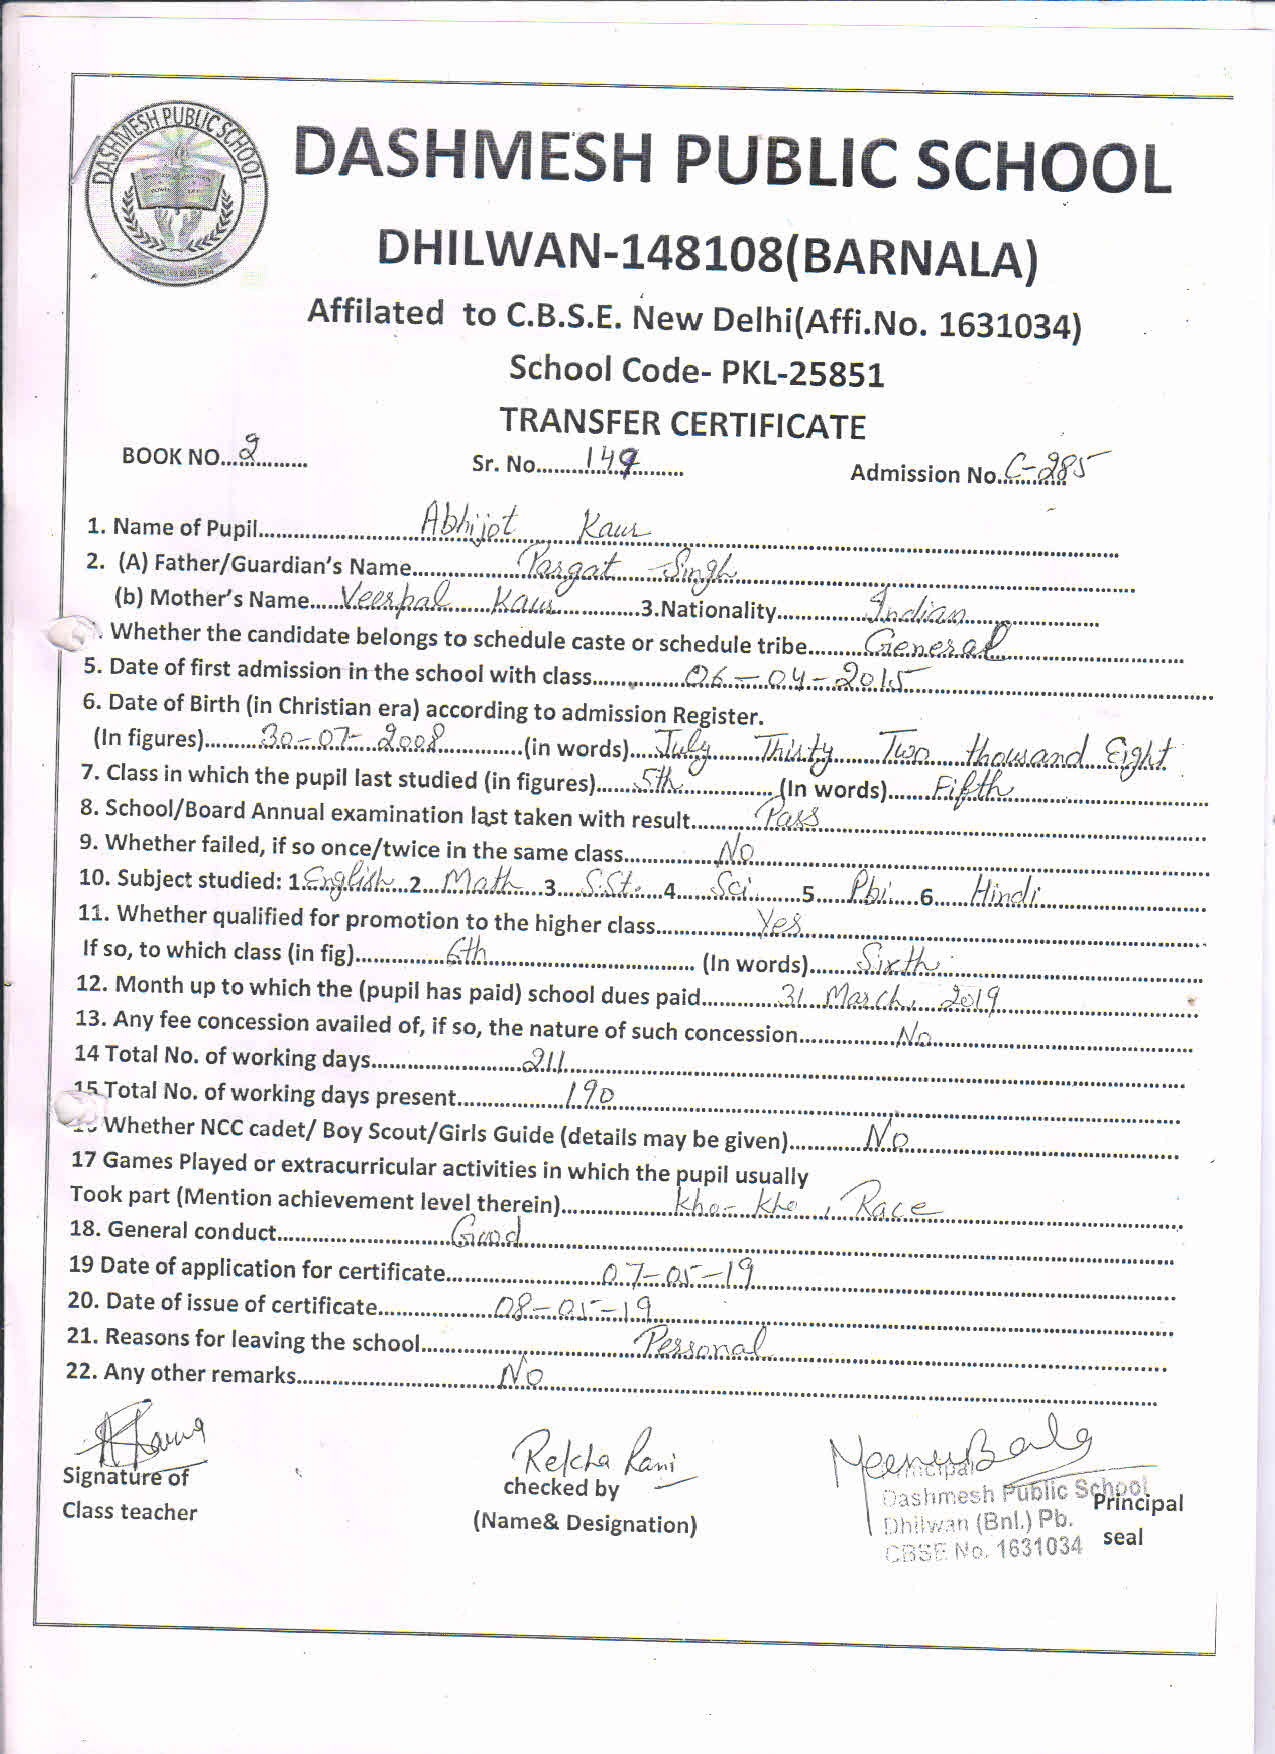 DASHMESH PUBLIC SCHOOL
DASHMESH PUBLIC SCHOOL
DHILWAN-148108(BARNALA)
Affilated to C.B.S.E. New Delhi(Affi.No. 1631034)
School Code- PKL-25851
TRANSFER CERTIFICATE
BOOK NO....2.......... Sr. No........149........ Admission No.C-285
1. Name of Pupil........Abhijot Kaur........
2. (A) Father/Guardian's Name........Pargat Singh........
(b) Mother's Name.....Veerpal Kaur........3.Nationality........Indian........
. Whether the candidate belongs to schedule caste or schedule tribe........General........
5. Date of first admission in the school with class........06-04-2015........
6. Date of Birth (in Christian era) according to admission Register.
(In figures)........30-07-2008........(in words)....July Thirty Two thousand Eight
7. Class in which the pupil last studied (in figures)......5th........(In words)......Fifth........
8. School/Board Annual examination last taken with result........Pass........
9. Whether failed, if so once/twice in the same class........No........
10. Subject studied: 1.English...2...Math...3....S.St....4.....Sci.....5.....Pbi....6.....Hindi........
11. Whether qualified for promotion to the higher class........Yes........
If so, to which class (in fig)........6th........ (In words)........Sixth........
12. Month up to which the (pupil has paid) school dues paid........31 March, 2019........
13. Any fee concession availed of, if so, the nature of such concession........No........
14 Total No. of working days........211........
15.Total No. of working days present........190........
Whether NCC cadet/ Boy Scout/Girls Guide (details may be given)........No........
17 Games Played or extracurricular activities in which the pupil usually
Took part (Mention achievement level therein)........kho-kho, Race........
18. General conduct........Good........
19 Date of application for certificate........07-05-19........
20. Date of issue of certificate........08-05-19........
21. Reasons for leaving the school........Personal........
22. Any other remarks........No........
Rekha Rani
Signature of checked by Principal
Class teacher (Name& Designation) seal
Principal
Dashmesh Public School
Dhilwan (Bnl.) Pb.
CBSE No. 1631034